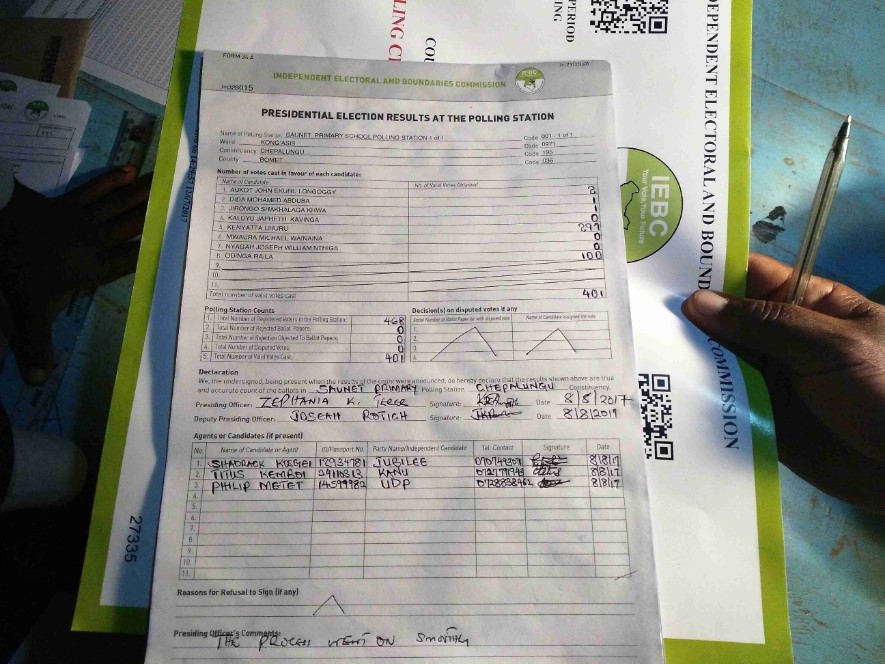 FORM 34 A
INDEPENDENT ELECTORAL AND BOUNDARIES COMMISSION
IEBC
PRESIDENTIAL ELECTION RESULTS AT THE POLLING STATION
Name of Polling Station SAUNET PRIMARY SCHOOL POLLING STATION 1 of 1 Code 001 - 1 of 1
Ward KONG'ASIS Code 0971
Constituency CHEPALUNGU Code 195
County BOMET Code 036
Number of votes cast in favour of each candidate:
Name of Candidate No. of Valid Votes Obtained
1. AUKOT JOHN EKURU LONGOGGY 2
2. DIDA MOHAMED ABDUBA 1
3. JIRONGO SHAKHALAGA KHWA 1
4. KALUYU JAPHETH KAVINGA 0
5. KENYATTA UHURU 297
6. MWAURA MICHAEL WAINAINA 0
7. NYAGAH JOSEPH WILLIAM NTHIGA 0
8. ODINGA RAILA 100
9.
10.
11.
Total number of valid votes cast 401
Polling Station Counts
1. Total Number of Registered Voters in the Polling Station 468
2. Total Number of Rejected Ballot Papers 0
3. Total Number of Rejection Objected To Ballot Papers 0
4. Total Number of Disputed Votes 0
5. Total Number of Valid Votes Cast 401
Decision(s) on disputed votes if any
Declaration
We, the undersigned, being present when the results of the count were announced, do hereby declare that the results shown above are true
and accurate count of the ballots in SAUNET PRIMARY Polling Station CHEPALUNGU Constituency.
Presiding Officer: ZEPHANIA K. Signature: Date 8/8/2017
Deputy Presiding Officer: JOSEAH ROTICH Signature: Date 8/8/2017
Agents or Candidates (if present)
No. Name of Candidate or Agent ID/Passport No. Party Name/Independent Candidate Tel. Contact Signature Date
1. SHADRACK KOSGEI JUBILEE 8/8/17
2. TITUS KEMBOI KANU 8/8/17
3. PHILIP METET 14599982 UDP 0728838462 8/8/17
4.
5.
6.
7.
8.
9.
10.
11.
Reasons for Refusal to Sign (if any)
Presiding Officer's Comments: THE PROCESS WENT ON SMOOTHLY
27335
IEBC
Your Vote, Your Future
COMMISSION